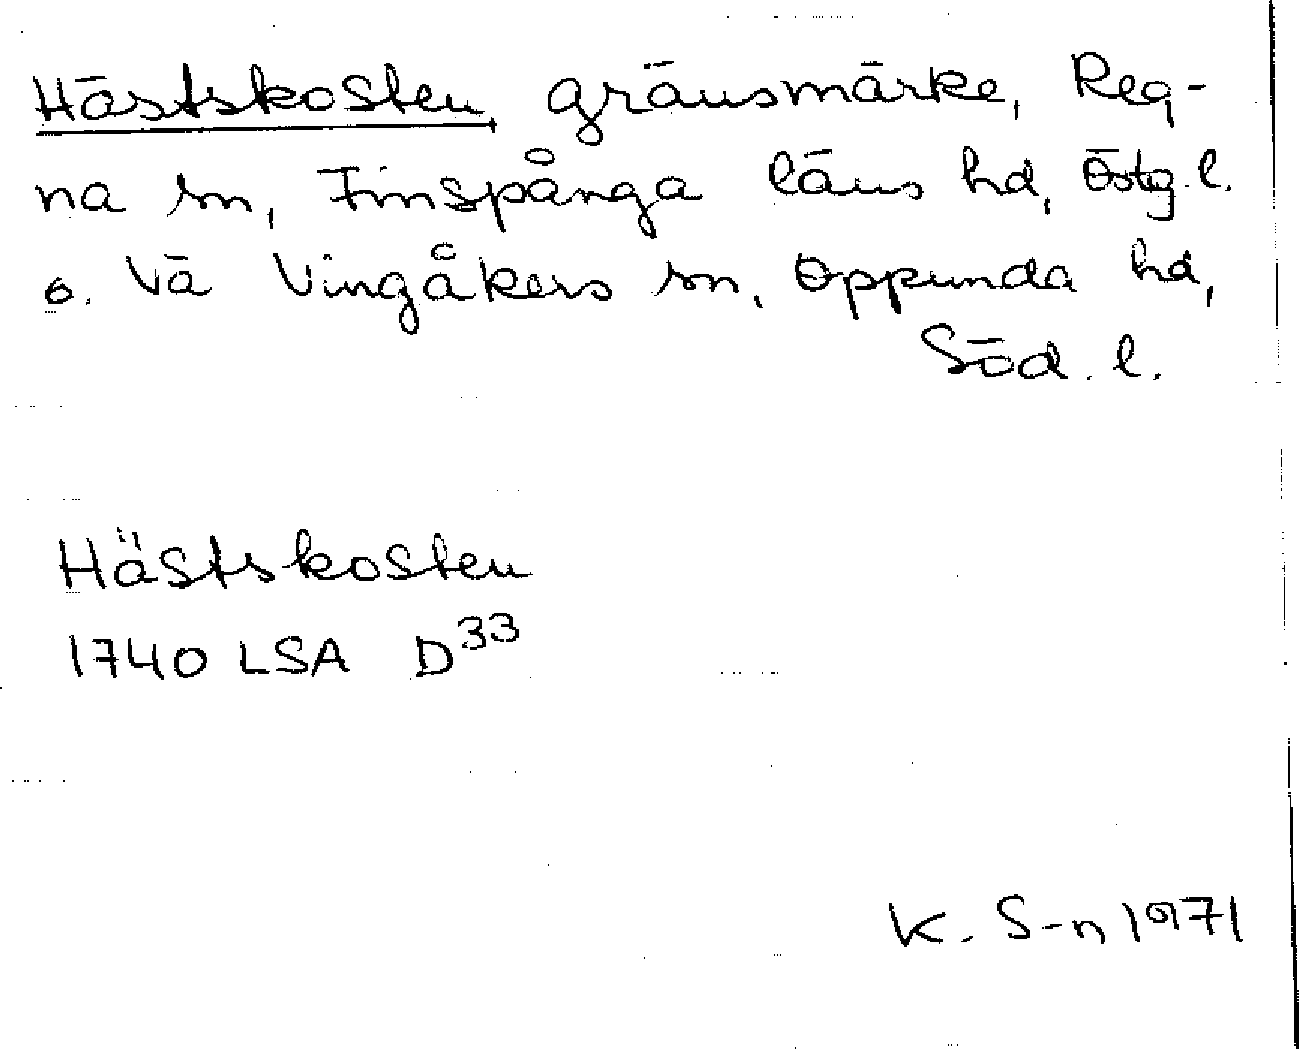 Hästskosten, gränsmärke, Reg-
na sn, Finspånga läns hd, Östg. l.
o. Vä Vingåkers sn, Oppunda hd,
Söd. l.
Hästskosten
1740 LSA D33
K. S-n 1971